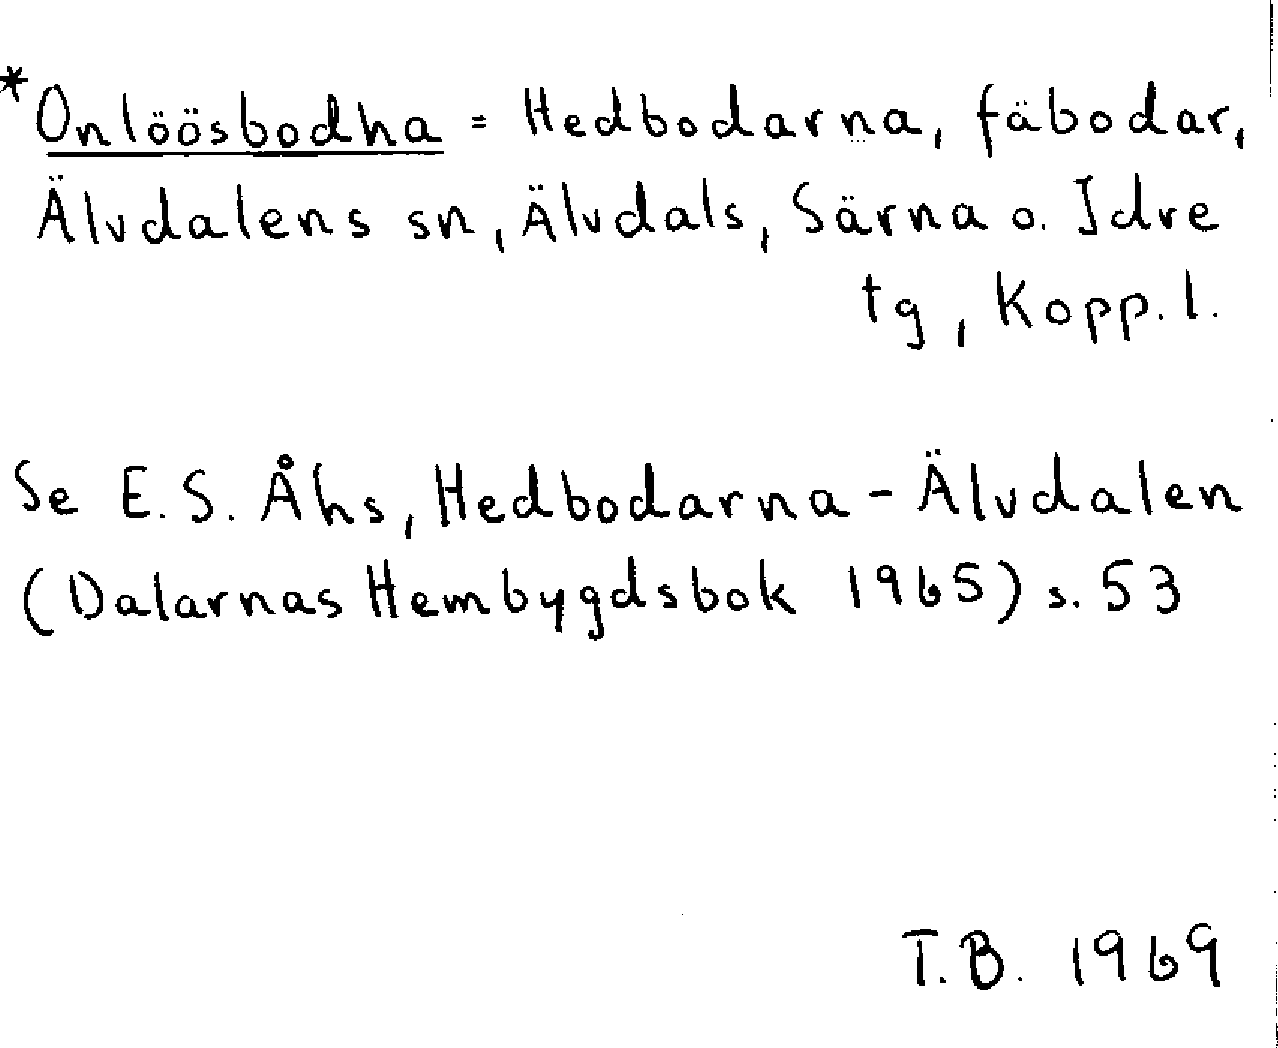 *Onlöösbodha = Hedbodarna, fäbodar,
Älvdalens sn, Älvdals, Särna o. Idre
tg, Kopp. l.
Se E.S. Åhs, Hedbodarna - Älvdalen
(Dalarnas Hembygdsbok 1965) s. 53
T.B. 1969